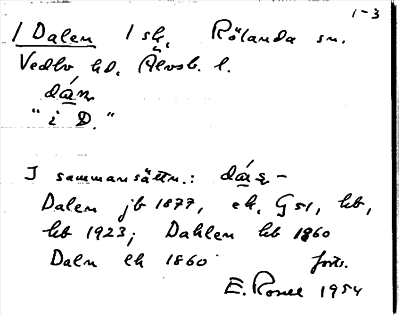 1-3
1 Dalen 1 sk. Rölanda sn.
Vedbo hd. Älvsb. l.
"i D."
I sammansättn.:
Dalen jb 1877, ek, GS1, kb,
kb 1923; Dahlen kb 1860
Daln ek 1860 forts.
E. Rosell 1954